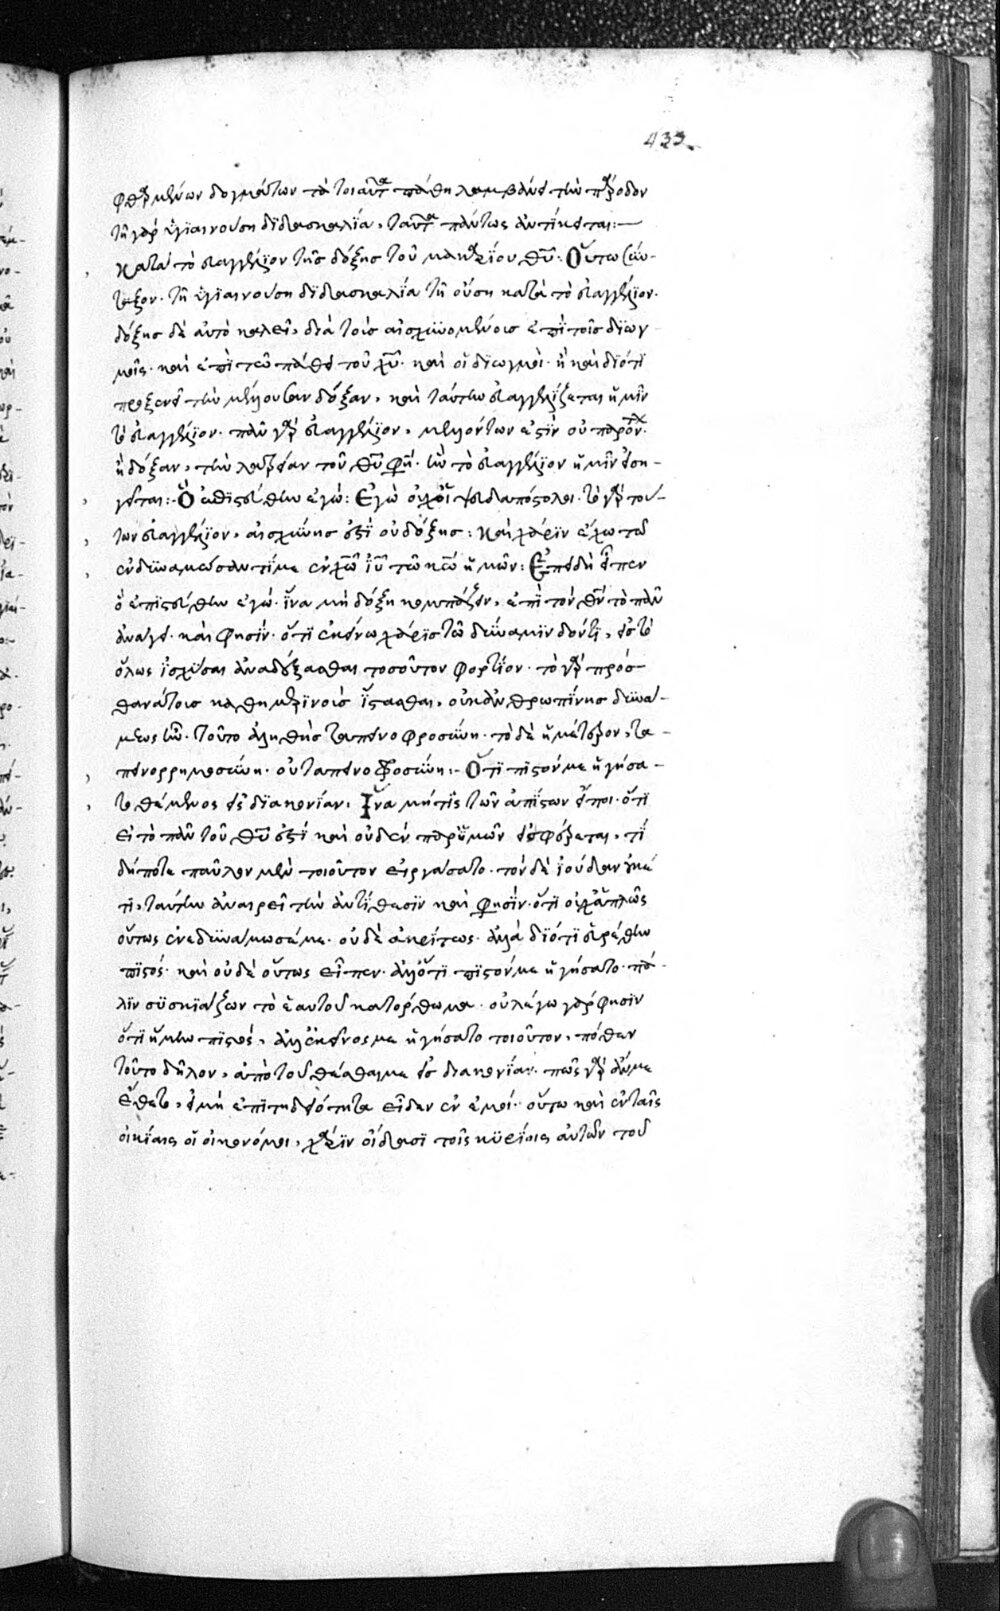 433
φθαρμένων δογμάτων τὰ τοιαῦτα πάθη λαμβάνει τὴν πρόοδον
τῇ γὰρ ὑγιαινούση διδασκαλία, ταῦτα πάντως ἀντίκειται:—
Κατὰ τὸ εὐαγγέλιον τῆς δόξης τοῦ μακαρίου θυ. Οὕτω σύν-
ταξον. τῆ ὑγιαινούση διδασκαλία τῆ οὔση κατὰ τὸ εὐαγγέλιον.
δόξης δὲ αὐτὸ καλεῖ, διὰ τοὺς αἰσχυνομένοις ἐπὶ τοῖς διωγ-
μοῖς. καὶ ἐπὶ τῶ πάθει τοῦ χυ. καὶ οἱ διωγμοὶ. ἢ καὶ διότι
προξενεῖ τὴν μέλλουσαν δόξαν, καὶ ταύτην εὐαγγελίζεται ἡμῖν
τὸ εὐαγγέλιον. πᾶν γὰρ εὐαγγέλιον, μελλόντων ἐστὶν οὐ παρόντων.
ἢ δόξαν, τὴν λατρείαν τοῦ θυ φησί. ἣν τὸ εὐαγγέλιον ἡμῖν εἰση-
γεῖται:. Ὃ ἐπιστεύθην ἐγώ: Ἐγὼ οὐχ οἱ ψευδαπόστολοι. τὸ γὰρ τού-
των εὐαγγέλιον, αἰσχύνης ἐστὶ οὐ δόξης: Καὶ χάριν ἔχω τῶ
ἐνδυναμώσαντί με ἐν χω ιυ τῶ κω ἡμῶν: Ἐπειδὴ εἶπεν
ὃ ἐπιστεύθην ἐγώ. ἵνα μὴ δόξη κομπάζειν, ἐπὶ τὸν θν τὸ πᾶν
ἀνάγει. καὶ φησίν. ὅτι ἐκείνω χάρις τῶ δύναμιν δόντι, εἰς τὸ
ὅλως ἰσχύσαι ἀναδέξασθαι τοσοῦτον φορτίον. τὸ γὰρ πρὸς
θανάτους καθημερινοὺς ἵστασθαι, οὐκ ἀνθρωπίνης δυνά-
μεως ἦν. τοῦτο ἀληθὴς ταπεινοφροσύνη. τὸ δὲ ἡμέτερον, τα-
πεινορρημοσύνη. οὐ ταπεινοφροσύνη:. Ὅτι πιστόν με ἡγήσα-
το θέμενος εἰς διακονίαν: Ἵνα μήτις τῶν ἀπίστων εἴποι. ὅτι
εἰ τὸ πᾶν τοῦ θυ ἐστί καὶ οὐδὲν παρ' ἡμῶν εἰσφέρεται, τί
δήποτε παῦλον μὲν τοιοῦτον εἰργάσατο. τὸν δὲ ἰούδαν οὐκέ
τι, ταύτην ἀναιρεῖ τὴν ἀντίθεσιν καὶ φησίν. ὅτι οὐχ ἁπλῶς
οὕτως ἐνεδυνάμωσέ με. οὐδὲ ἀκρίτως. ἀλλὰ διότι εὑρέθην
πιστός. καὶ οὐδὲ οὕτως εἶπεν. ἀλλ' ὅτι πιστόν με ἡγήσατο. πά-
λιν συσκιάζων τὸ ἑαυτοῦ κατόρθωμα. οὐ λέγω γὰρ φησὶν
ὅτι ἤμην πιστός, ἀλλ' ἐκεῖνος με ἡγήσατο τοιοῦτον, πόθεν
τοῦτο δῆλον, ἀπὸ τοῦ θέσθαι με εἰς διακονίαν. πῶς γὰρ ἄν με
ἔθετο, εἰ μὴ ἐπιτηδειότητα εἶδεν ἐν ἐμοί. οὕτω καὶ ἐν ταῖς
οἰκίαις οἱ οἰκονόμοι, χάριν οἴδασι τοῖς κυρίοις αὐτῶν τοῦ